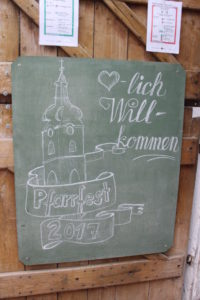 ♥-lich
Will-
kommen
Pfarrfest
2017